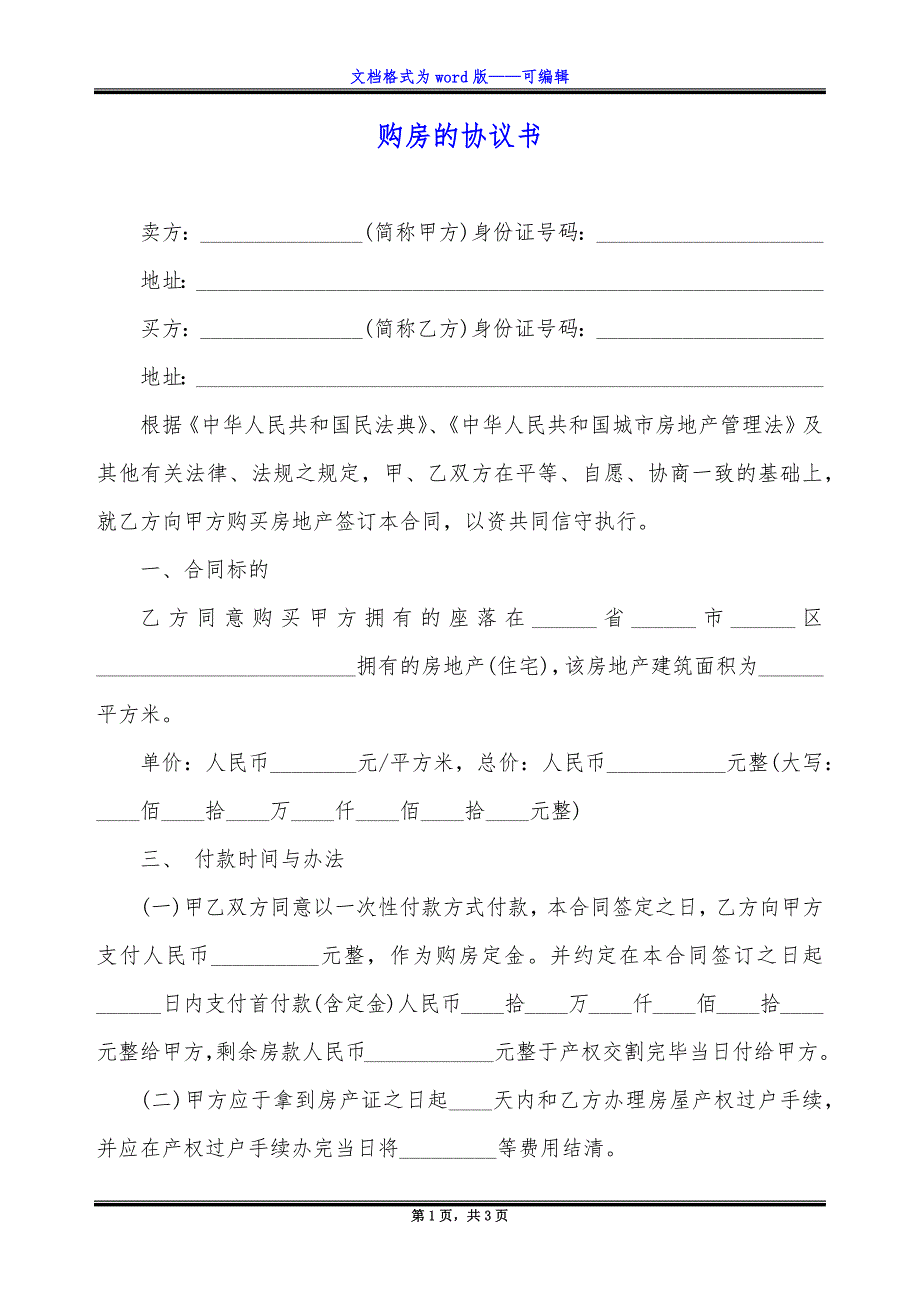 文档格式为 word 版——可编辑
购房的协议书
卖方：_______________(简称甲方)身份证号码：_____________________
地址：__________________________________________________________
买方：_______________(简称乙方)身份证号码：_____________________
地址：__________________________________________________________
根据《中华人民共和国民法典》、《中华人民共和国城市房地产管理法》及
其他有关法律、法规之规定，甲、乙双方在平等、自愿、协商一致的基础上，
就乙方向甲方购买房地产签订本合同，以资共同信守执行。
一、合同标的
乙方同意购买甲方拥有的座落在______省______市______区
________________________拥有的房地产(住宅),该房地产建筑面积为______
平方米。
单价：人民币________元/平方米，总价：人民币___________元整(大写：
____佰____拾____万____仟____佰____拾____元整)
三、 付款时间与办法
(一)甲乙双方同意以一次性付款方式付款，本合同签定之日，乙方向甲方
支付人民币__________元整，作为购房定金。并约定在本合同签订之日起
______日内支付首付款(含定金)人民币____拾____万____仟____佰____拾____
元整给甲方,剩余房款人民币____________元整于产权交割完毕当日付给甲方。
(二)甲方应于拿到房产证之日起____天内和乙方办理房屋产权过户手续，
并应在产权过户手续办完当日将_________等费用结清。
第 1 页，共 3 页